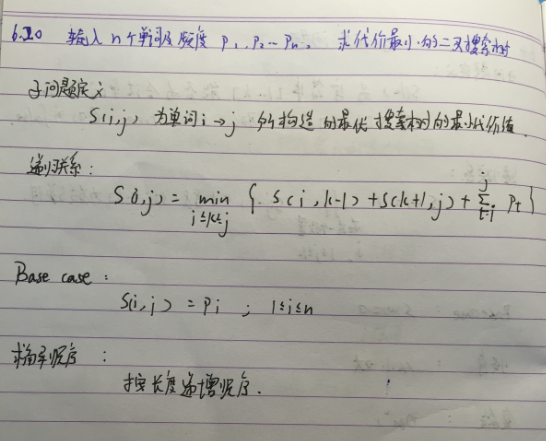 6.20 输入 n 个单词及频度 P1, P2 … Pn, 求代价最小的二叉搜索树
子问题定义
S(i,j) 为单词 i → j 所构造的最优搜索树的最小代价值.
递归联系:
S(i,j) = min {S(i,k-1) + S(k+1,j) + Σ Pt}
i≤k≤j
Base case:
S(i,j) = Pi ; 1≤i≤n
求解顺序:
按长度递增顺序.